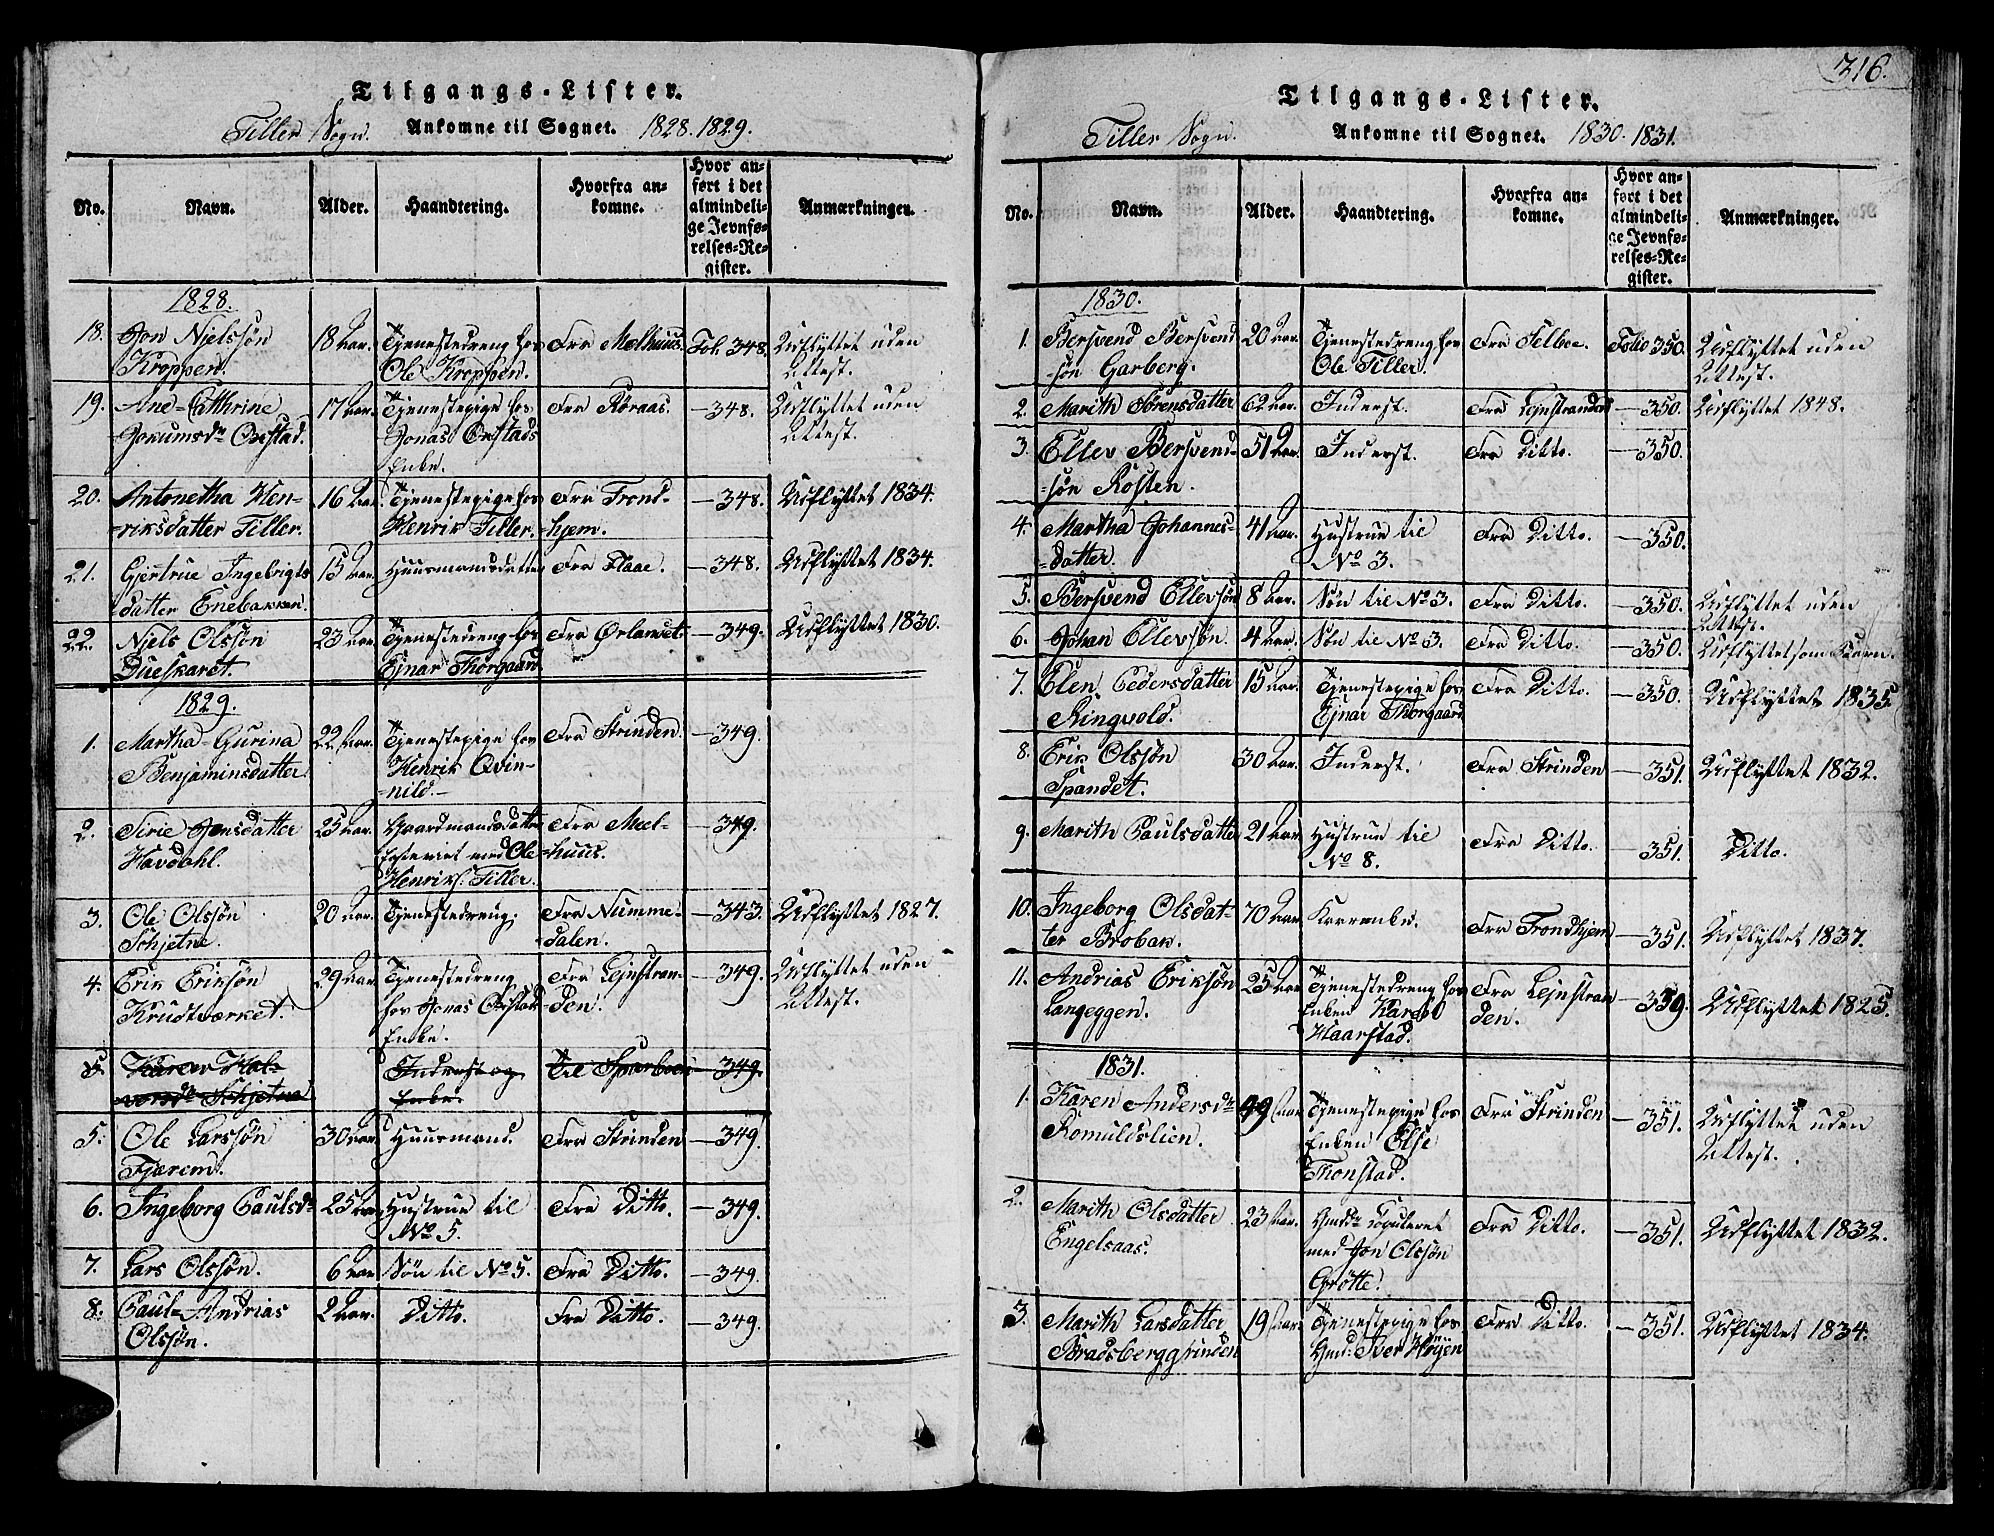 Tilgangs-Lister.
Tiller Sogn. Ankomne til Sognet. 1828. 1829.
No. Navn. Alder. Haandtering. Hvorfra ankomne. Hvor anført i det almindelige Jevnførelses-Register. Anmærkninger.
1828.
18. Jon Nielssön 18 Aar. Tjenestedreng hos Fra Melhuus. Fol. 348. Udflyttet uden
Kroppen. Ole Kroppen. Attest.
19. Ane-Cathrine 17 Aar. Tjenestepige hos Fra Röraas. —348. Udflyttet uden
Jokumsdr Oxstad. Jonas Oxstads Attest.
Enke.
20. Antonetha Hen- 16 Aar. Tjenestepige hos Fra Trond- —348. Udflyttet 1834.
=riksdatter Tiller. Henrik Tiller. =hjem.
21. Gjertrue Ingebrigts 15 Aar. Huusmandsdatter Fra Flaae. —348. Udflyttet 1834.
datter Enebakken.
22. Niels Olssön 23 Aar. Tjenestedreng hos Fra Ørlandet —349. Udflyttet 1830.
Dueskaret. Ejnar Thorgaard
1829.
1. Martha-Gurina 22 Aar. Tjenestepige hos Fra Strinden. —349.
Benjaminsdatter Henrik Qvin-
=nild.—
2. Sirie Jonsdatter 25 Aar. Gaardmandsdatter Fra Meel- —349.
Havdahl. med Ole =huus.
Henriks. Tiller.
3. Ole Olssön 20 Aar. Tjenestedreng. Fra Numme- —343. Udflyttet 1827.
Schjetne. dalen.
4. Erik Eriksön 29 Aar. Tjenestedreng Fra Lejnstran- —349. Udflyttet uden
Krudtværket. hos Jonas Oxstads den. Attest.
Enke.
5. Karen Hal- Inderst og Til Sparboe —349.
vorsdr Schjetne Enke.
5. Ole Larssön 30 Aar. Huusmand. Fra Strinden —349.
Fjærem.
6. Ingeborg Paulsdr 25 Aar. Hustrue til Fra Ditto. —349.
No 5.
7. Lars Olssön. 6 Aar Sön til No 5. Fra Ditto. —349.
8. Paul-Andrias 2 Aar. Ditto. Fra Ditto. —349.
Olssön.
316.
Tilgangs-Lister.
Tiller Sogn. Ankomne til Sognet. 1830. 1831.
No. Navn. Alder. Haandtering. Hvorfra ankomne. Hvor anført i det almindelige Jevnførelses-Register. Anmærkninger.
1830.
1. Bersvend Bersvend 20 Aar. Tjenestedreng hos Fra Selboe. Folio 350. Udflyttet uden
=sön Garberg. Ole Tiller. Attest.
2. Marith Sörensdatter 62 Aar. Inderst. Fra Lejnstranden —350. Udflyttet 1848.
3. Ellev Bersvend- 51 Aar. Inderst. Fra Ditto. —350.
=sön Rosten.
4. Martha Johannes- 41 Aar. Hustrue til Fra Ditto. —350.
datter. No 3.
5. Bersvend Ellevsön 8 Aar. Sön til No 3. Fra Ditto. —350. Udflyttet uden
Attest.
6. Johan Ellevsön. 4 Aar. Sön til No 3. Fra Ditto. —350. Udflyttet som Barn.
7. Elen Pedersdatter 15 Aar. Tjenestepige hos Fra Ditto. —350. Udflyttet 1835.
Ringvold. Ejnar Thorgaard
8. Erik Olssön 30 Aar. Inderst. Fra Strinden —351. Udflyttet 1832.
Spandet.
9. Marith Paulsdatter 21 Aar. Hustrue til Fra Ditto. —351. Ditto.
No 8.
10. Ingeborg Olsdat- 70 Aar Fra Trondhjem —351. Udflyttet 1837.
ter Brobak.
11. Andrias Eriksön 25 Aar Tjenestedreng hos Fra Lejnstran —339. Udflyttet 1825.
Langeggen. Enken Karen den.
Haarstad.
1831.
1. Karen Andersdr 49 Aar Tjenestepige hos Fra Strinden —351. Udflyttet uden
Romuldslien. Enken Else Attest.
Thonstad.
2. Marith Olsdatter 23 Aar. Copuleret Fra Ditto. —351. Udflyttet 1832.
Engelsaas. med Jon Olssön
Grötte.
3. Marith Larsdatter 19 Aar. Tjenestepige hos Fra Ditto. —351. Udflyttet 1834.
Bradsberggrinden Gmd: Iver Höyen